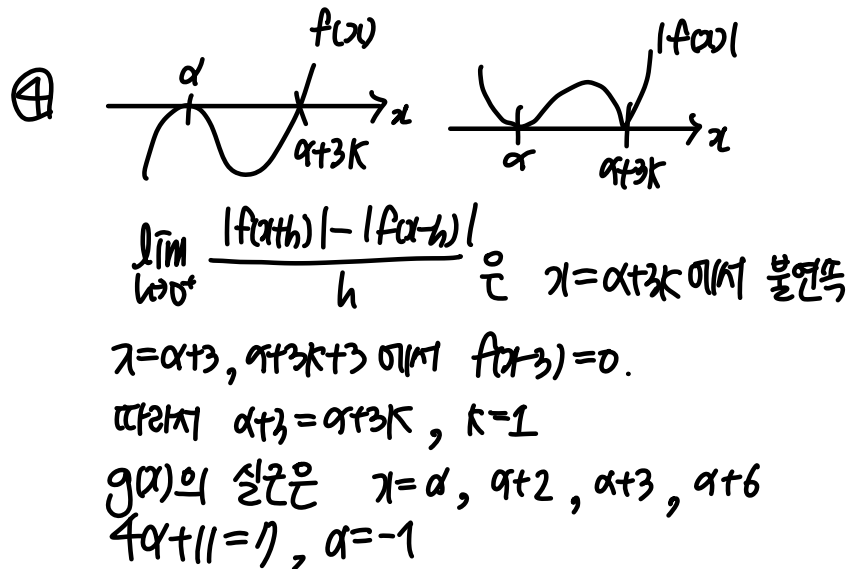 ④
α f(x) x α+3k
|f(x)| x α α+3k
lim h→0+ (|f(x+h)|-|f(x-h)|)/h 은 x=α+3k에서 불연뚝
x=α+3, α+3k+3 에서 f(x-3)=0.
따라서 α+3=α+3k, k=1
g(x)의 실근은 x=α, α+2, α+3, α+6
4α+11=7, α=-1